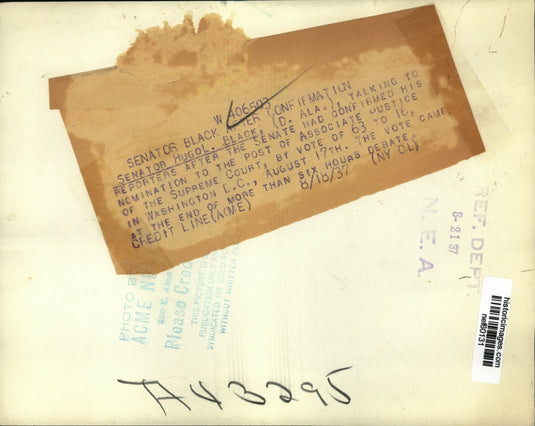 W 406503
SENATOR BLACK AFTER CONFIRMATION
SENATOR HUGO L. BLACK, (D. ALA.), TALKING TO
REPORTERS AFTER THE SENATE HAD CONFIRMED HIS
NOMINATION TO THE POST OF ASSOCIATE JUSTICE
OF THE SUPREME COURT, BY VOTE OF 63 TO 16,
IN WASHINGTON D.C., AUGUST 17TH. THE VOTE CAME
AT THE END OF MORE THAN SIX HOURS DEBATE.
CREDIT LINE (ACME) 8/18/37 (NY CL)
REF. DEPT
8-21 37
N. E. A.
PHOTO B
ACME NE
Please Cred
THIS PICTURE IS
PUBLICATION ONLY
SYNDICATED OR
WITHOUT WRITTEN PE
historicimages.com
nef60131
A43295